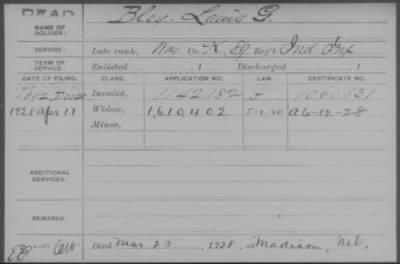 DEAD
NAME OF SOLDIER: Bley, Louis G.
SERVICE: Late rank, Co. K, 59 Reg't Ind Inf
TERM OF SERVICE: Enlisted , 1 Discharged , 1
DATE OF FILING. CLASS. APPLICATION NO. LAW. CERTIFICATE NO.
1892 Invalid, 1142182 J 1060831
1928 Apr 11 Widow, 1,610,402 5-1-20 A6-12-28
Minor,
ADDITIONAL SERVICES:
REMARKS:
Died Mar 23, 1928, at Madison, Neb.